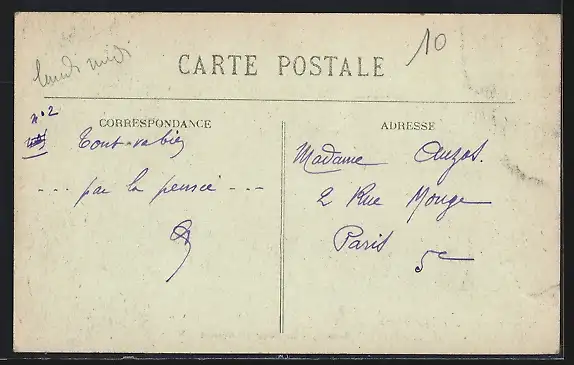 lundi midi
10
CARTE POSTALE
n° 2
CORRESPONDANCE
ADRESSE
Tout va bien
--- par la pensée ---
Madame Auzos.
2 Rue Monge
Paris 5e